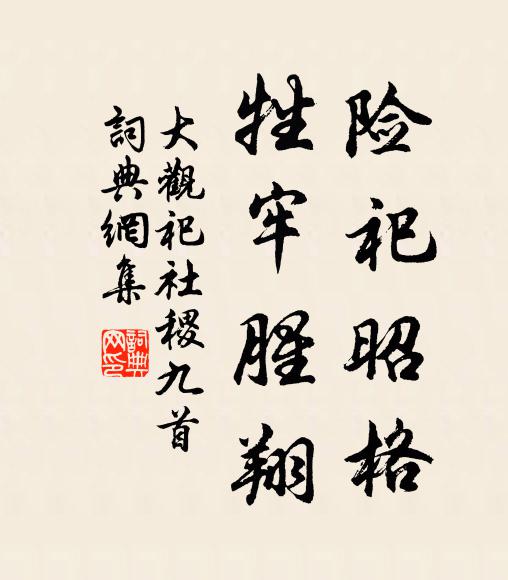 险祀昭格
牲牢腥翔
大觀祀社稷九首
詞典網集
詞典
网印